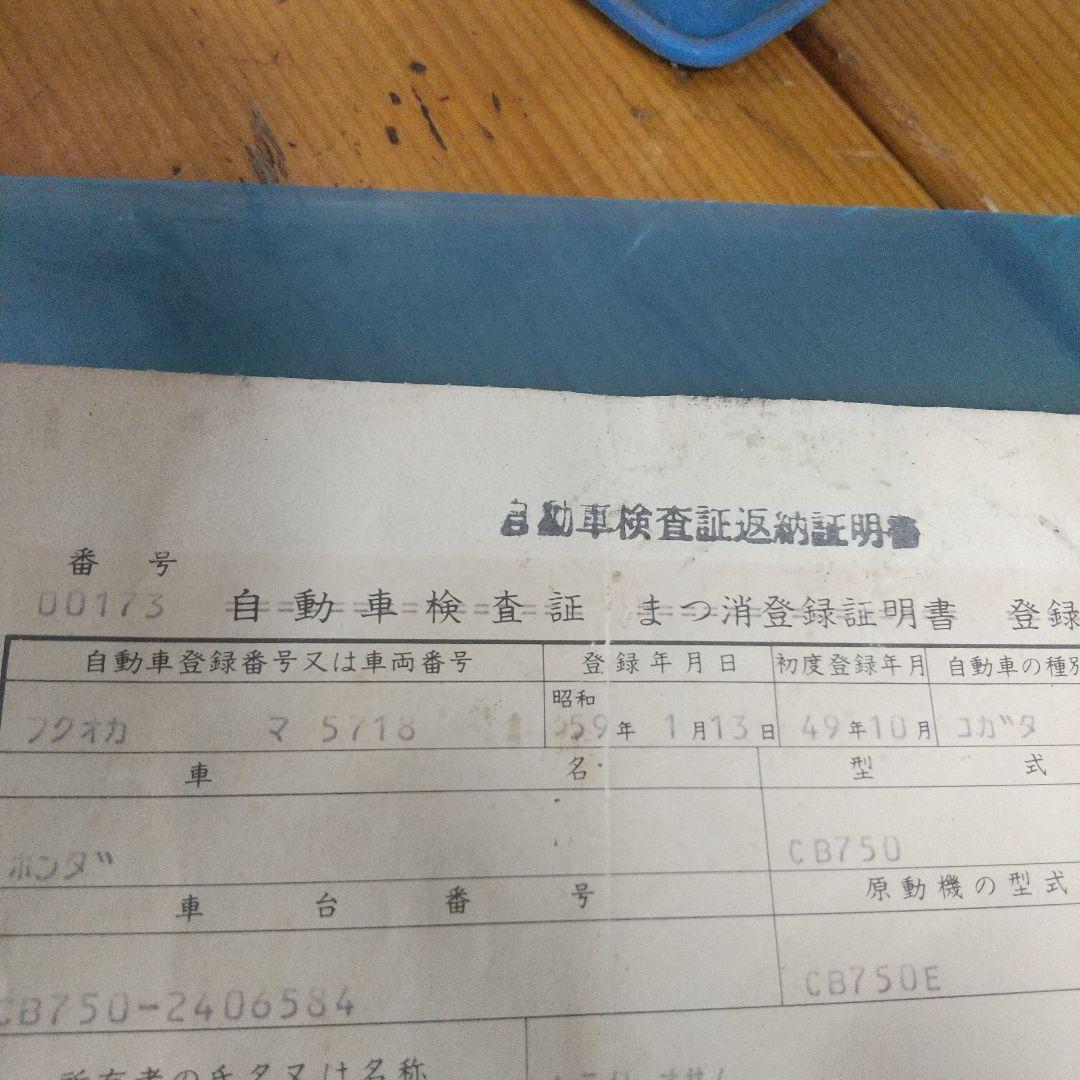 自動車検査証返納証明書
番号
00173 自動車検査証 まつ消登録証明書 登録
自動車登録番号又は車両番号 登録年月日 初度登録年月 自動車の種別
昭和
フクオカ マ 5718 59年 1月13日 49年10月 コガタ
車名 型式
ホンダ CB750
車台番号 原動機の型式
CB750-2406584 CB750E
所有者の氏名又は名称